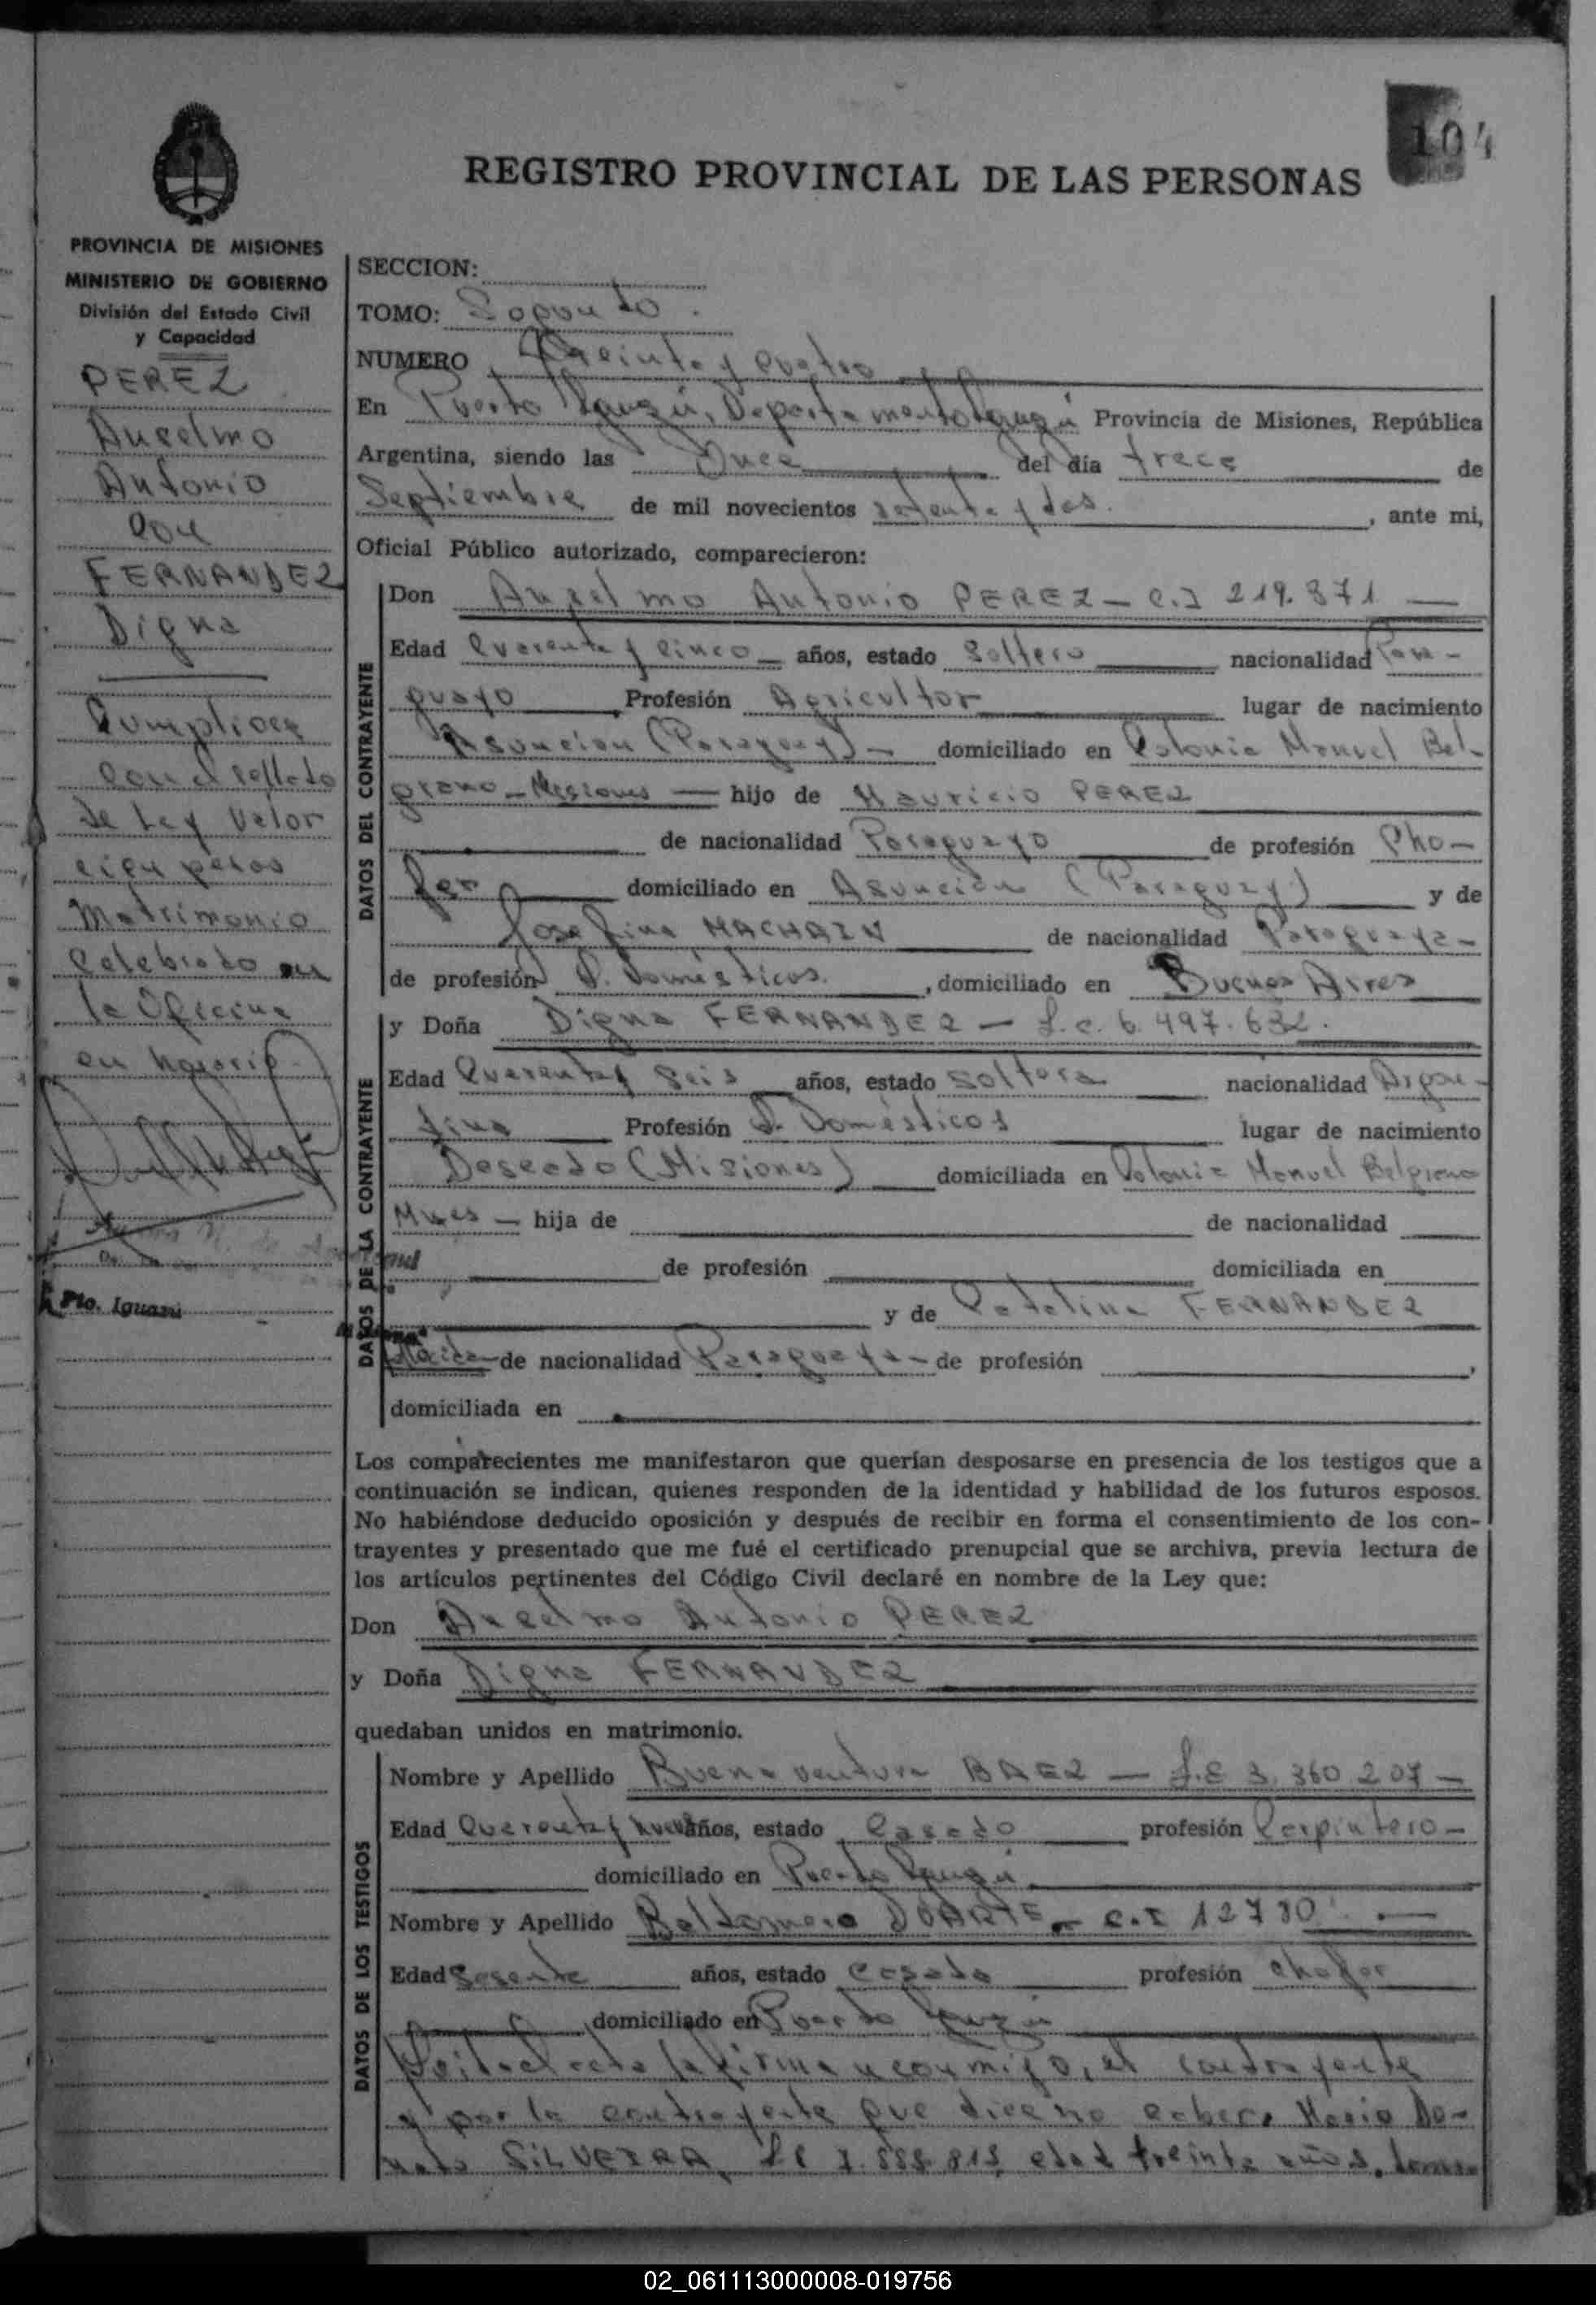 104
REGISTRO PROVINCIAL DE LAS PERSONAS
PROVINCIA DE MISIONES
MINISTERIO DE GOBIERNO
División del Estado Civil
y Capacidad
PEREZ
Anselmo
Antonio
con
FERNANDEZ
Digna
Cumpliose
con el sellado
de Ley Valor
cien pesos
Matrimonio
Celebrado en
la Oficina
en horario
Pto. Iguazú
SECCION:
TOMO: Segundo
NUMERO Treinta y cuatro
En Puerto Iguazú, Departamento Iguazú Provincia de Misiones, República
Argentina, siendo las Once del día trece de
Septiembre de mil novecientos setenta y dos. , ante mi,
Oficial Público autorizado, comparecieron:
DATOS DEL CONTRAYENTE
Don Anselmo Antonio PEREZ - C.I 219.871
Edad Cuarenta y cinco años, estado Soltero nacionalidad Para-
guayo Profesión Agricultor lugar de nacimiento
Asuncion (Paraguay) - domiciliado en Colonia Manuel Bel-
grano - Misiones - hijo de Mauricio PEREZ
de nacionalidad Paraguayo de profesión Cho-
fer domiciliado en Asunción (Paraguay) y de
Josefina MACHAIN de nacionalidad Paraguaya -
de profesión Q. Domésticos. , domiciliado en Buenos Aires
DATOS DE LA CONTRAYENTE
y Doña Digna FERNANDEZ - L.c. 6.497.632.
Edad Cuarenta y seis años, estado soltera nacionalidad Argen-
tina Profesión Q. Domésticos lugar de nacimiento
Deseado (Misiones) domiciliada en Colonia Manuel Belgrano
Mnes - hija de de nacionalidad
de profesión domiciliada en
y de Catalina FERNANDEZ
de nacionalidad Paraguaya - de profesión ,
domiciliada en
Los comparecientes me manifestaron que querían desposarse en presencia de los testigos que a
continuación se indican, quienes responden de la identidad y habilidad de los futuros esposos.
No habiéndose deducido oposición y después de recibir en forma el consentimiento de los con-
trayentes y presentado que me fué el certificado prenupcial que se archiva, previa lectura de
los artículos pertinentes del Código Civil declaré en nombre de la Ley que:
Don Anselmo Antonio PEREZ
y Doña Digna FERNANDEZ
quedaban unidos en matrimonio.
DATOS DE LOS TESTIGOS
Nombre y Apellido Buena ventura BAEZ - L.E 3.360.207 -
Edad Cuarenta y nueve años, estado Casado profesión Carpintero -
domiciliado en Puerto Iguazú
Nombre y Apellido Baldomero DUARTE - C.I 12730
Edad Sesenta años, estado casado profesión chofer
domiciliado en Puerto Iguazú
Leida el acta la firman conmigo, el contrayente
y por la contrayente que dice no saber, Mario Do-
nato SILVEIRA, edad treinta años,
02_061113000008-019756